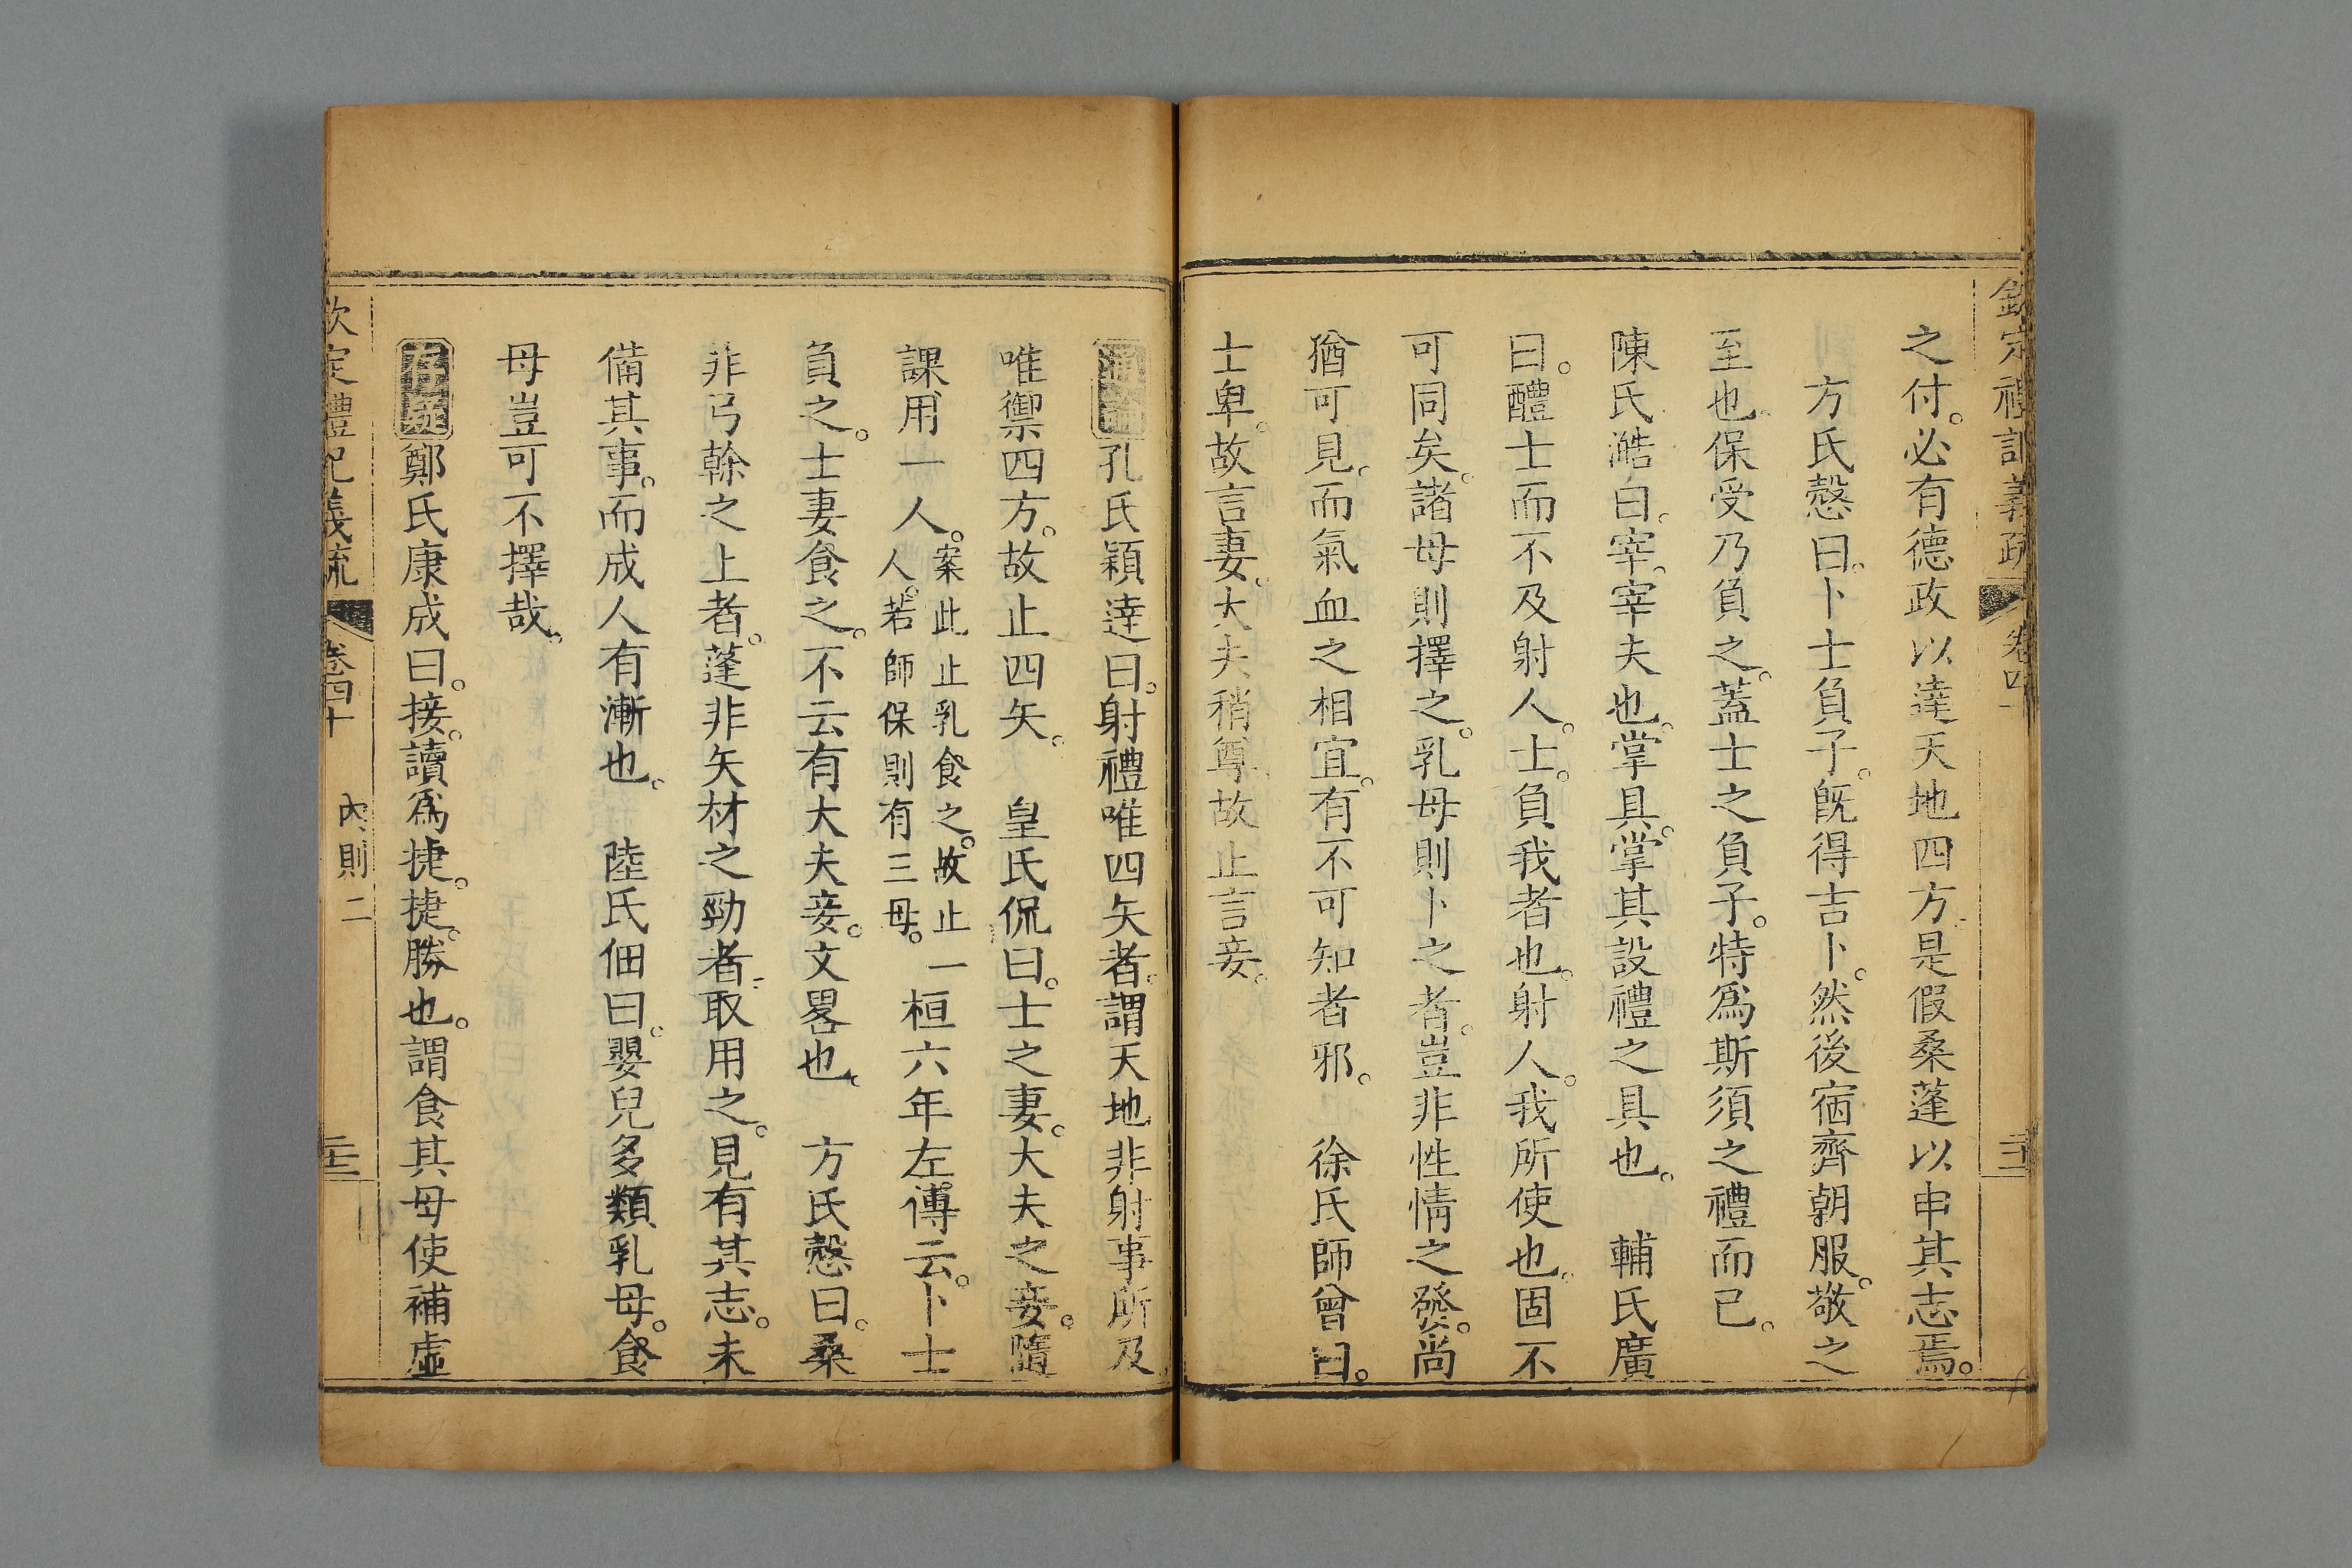 欽定禮記義疏 卷四十
之付。必有德政以達天地四方。是假桑蓬以申其志焉。
方氏慤曰。卜士負子。旣得吉卜。然後宿齊朝服。敬之
至也。保受乃負之。蓋士之負子。特爲斯須之禮而已。
陳氏澔曰。宰。宰夫也。掌具。掌其設禮之具也。 輔氏廣
曰。醴士而不及射人。士。負我者也。射人。我所使也。固不
可同矣。諸母則擇之。乳母則卜之者。豈非性情之發。尚
猶可見。而氣血之相宜。有不可知者邪。 徐氏師曾曰。
士卑。故言妻。大夫稍尊。故止言妾。
通論孔氏穎達曰。射禮唯四矢者。謂天地非射事所及。
唯禦四方。故止四矢。 皇氏侃曰。士之妻。大夫之妾。隨
課用一人。案此止乳食之。故止一人。若師保則有三母。桓六年左傳云。卜士
負之。士妻食之。不云有大夫妾。文畧也。 方氏慤曰。桑
非弓榦之上者。蓬非矢材之勁者。取用之。見有其志。未
備其事。而成人有漸也。 陸氏佃曰。嬰兒多類乳母。食
母豈可不擇哉。
存疑鄭氏康成曰。接。讀爲捷。捷。勝也。謂食其母使補虛
欽定禮記義疏 卷四十 內則二